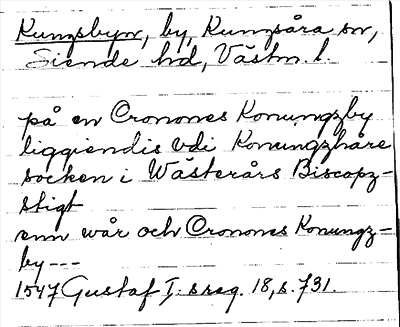 Kungsbyn, by, Kungsåra sn,
Siende hd, Västm. l.
på en Cronones Konungzby
liggiendis vdi Konungzhåre
socken i Wästerårs Biscopz-
stigt
enn wår och Cronones Konungz-
by ---
1547 Gustaf I: s reg. 18, s. 731.